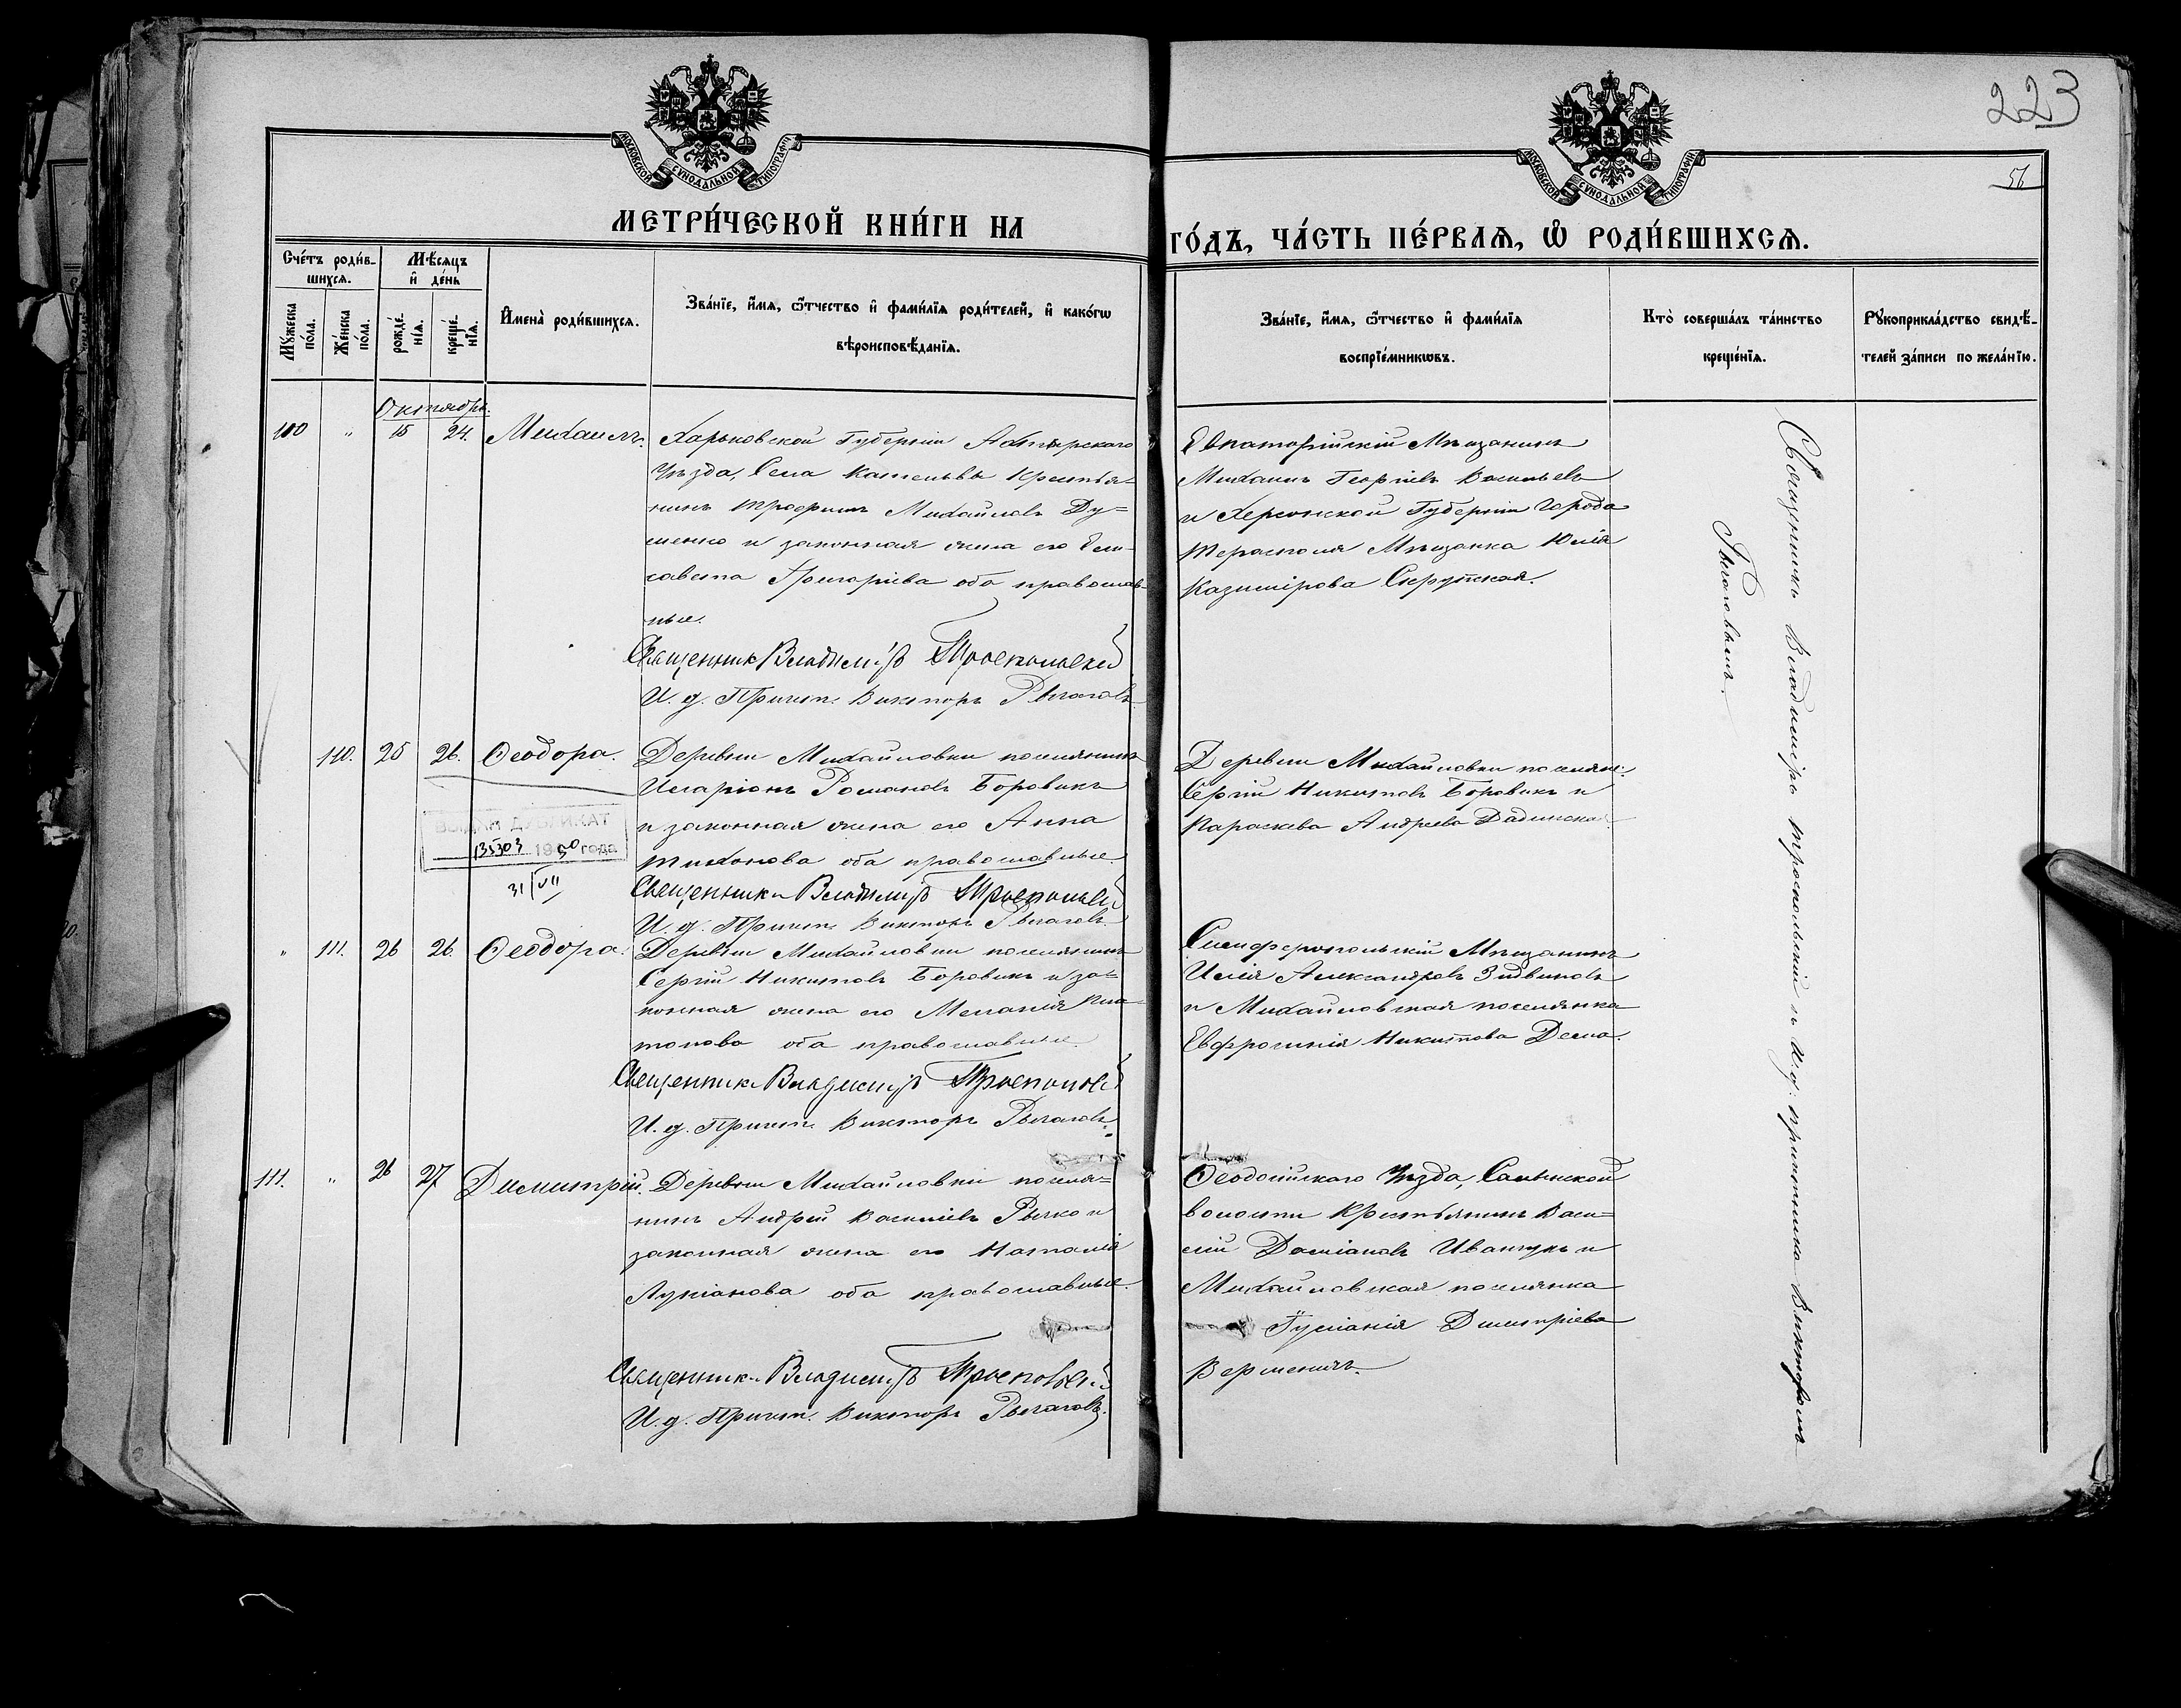 223
56
МОСКОВСКОЙ СѴНОДАЛЬНОЙ ТИПОГРАФІИ
МОСКОВСКОЙ СѴНОДАЛЬНОЙ ТИПОГРАФІИ
МЕТРИ́ЧЕСКОЙ КНИ́ГИ НА
ГО́ДЪ, ЧА́СТЬ ПЕ́РВАѦ, Ѡ РОДИ́ВШИХСѦ.
Сче́тъ роди́в-
шихсѧ.
Мѣ́сѧцъ
и҆ де́нь
Мꙋ́жеска по́ла.
Же́нска по́ла.
рожде́-
нїѧ.
креще́-
нїѧ.
И҆мена̀ роди́вшихсѧ.
Зва́нїе, и҆́мѧ, ѻ҆́тчество и҆ фами́лїѧ роди́телей, и҆ како́гѡ
вѣроисповѣ́данїѧ.
Зва́нїе, и҆́мѧ, ѻ҆́тчество и҆ фами́лїѧ
воспрїе́мникѡвъ.
Кто̀ соверша́лъ та́инство
креще́нїѧ.
Рꙋкоприкла́дство свидѣ́-
телей за́писи по жела́нїю.
Октябрь.
110 " 15 24. Михаилъ.
Харьковской Губерніи Ахтырскаго
Уѣзда, Села Котельвы Крестья-
нинъ Трофимъ Михайловъ Ду=
менко и законная жена его Ели-
савета Григоріева оба православ-
ные.
Священникъ Владиміръ Троепольскій
И. д. Причет. Викторъ Рычаговъ
Евпаторійскій Мѣщанинъ
Михаилъ Георгіевъ Васильевъ
и Херсонской Губерніи Города
Тераспoля Мѣщанка Юлія
Казимірова
Священникъ Владиміръ Троепольскій и И. д. причетника Викторомъ
Рычаговымъ.
110. 25 26. Ѳеодора.
Деревни Михайловки поселянинъ
Иларіонъ Романовъ Боровикъ
и законная жена его Анна
Тихонова оба православные.
Священникъ Владиміръ Троепольскій
И. д. Причет. Викторъ Рычаговъ
Деревни Михайловки поселяне
Сергій Никитовъ Боровикъ и
Параскева Андреева
ВЫДАН ДУБЛИКАТ
135303 1950 года
31/VII
" 111. 26 26. Ѳеодора.
Деревни Михайловки поселянинъ
Сергій Никитовъ Боровикъ и за=
конная жена его Меланія Пла-
тонова оба православные
Священникъ Владиміръ Троепольскій
И. д. Причет. Викторъ Рычаговъ.
Симферопольскій Мѣщанинъ
Илія Александровъ
и Михайловская поселянка
Евфросинія Никитова Дема.
111. " 26 27 Димитрій.
Деревни Михайловки поселя=
нинъ Андрей Васильевъ Рычко и
законная жена его Наталія
Лукіанова оба православные.
Священникъ Владиміръ Троепольскій
И. д. Причет. Викторъ Рычаговъ.
Ѳеодосійскаго Уѣзда,
волости Крестьянинъ Васи=
лій Даміановъ Иванчукъ и
Михайловская поселянка
Іуліанія Димитріева